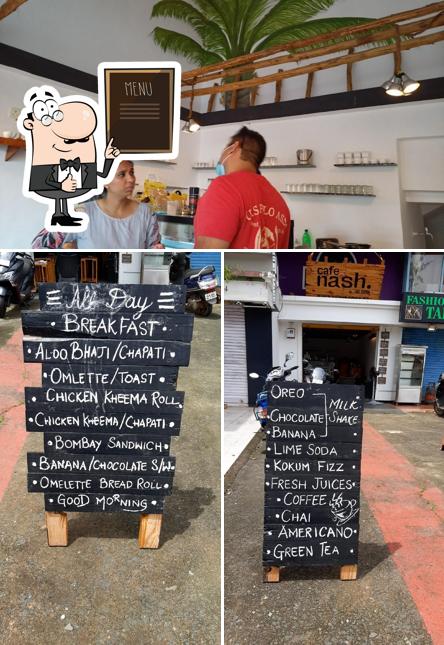 MENU
All Day
BREAKFAST
• ALOO BHAJI/CHAPATI •
• OMLETTE/TOAST •
• CHICKEN KHEEMA ROLL •
• CHICKEN KHEEMA/CHAPATI •
• BOMBAY SANDWICH •
• BANANA/CHOCOLATE S/W •
• OMELETTE BREAD ROLL •
• GOOD MORNING •
cafe
nash.
FASHION
TA
• OREO
• CHOCOLATE
• BANANA
MILK
SHAKE
• LIME SODA
• KOKUM FIZZ •
• FRESH JUICES •
• COFFEE
• CHAI
• AMERICANO •
• GREEN TEA •